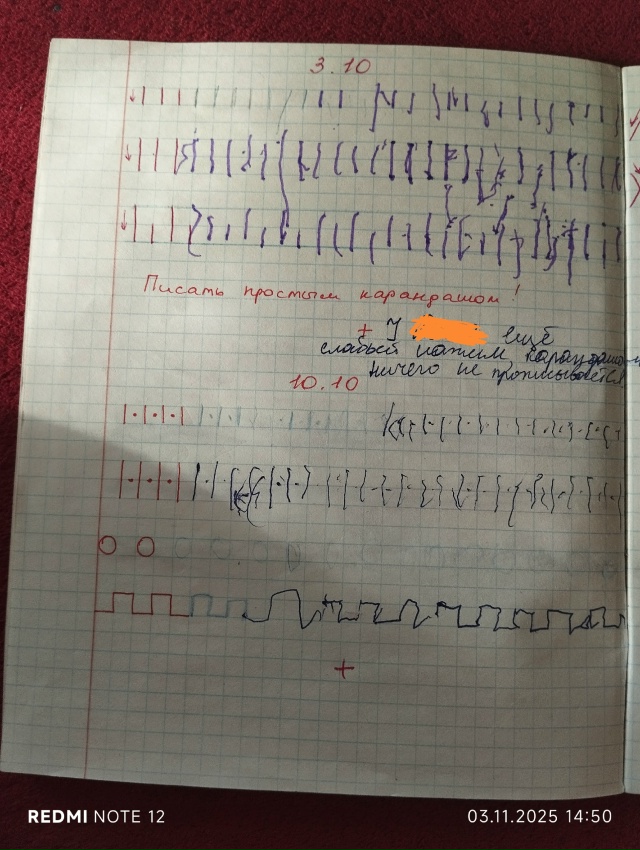 3.10
Писать простым карандашом!
+ У ещё
слабый нажим карандаша и
ничего не прописывается
10.10
+
REDMI NOTE 12
03.11.2025 14:50